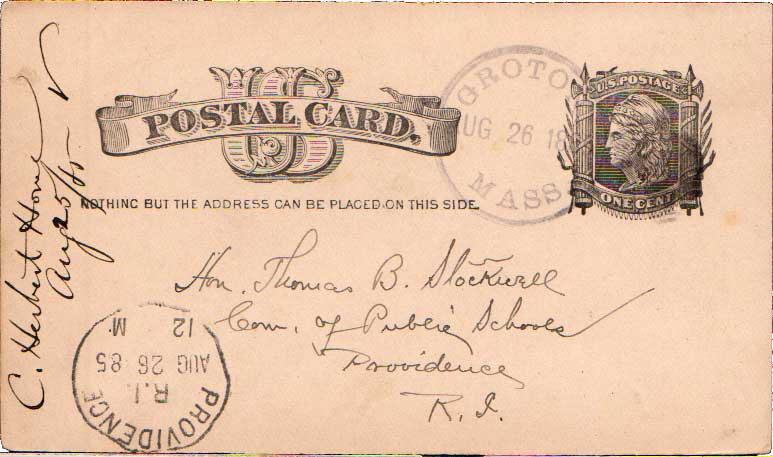 U.S. POSTAGE
ONE CENT
US
POSTAL CARD.
NOTHING BUT THE ADDRESS CAN BE PLACED ON THIS SIDE.
GROTO
UG. 26 18
MASS
Hon. Thomas B. Stockwell
Com. of Public Schools
Providence
R. I.
C. Herbert Howe
Aug 25/85
PROVIDENCE
R.I.
AUG 26 85
12 M